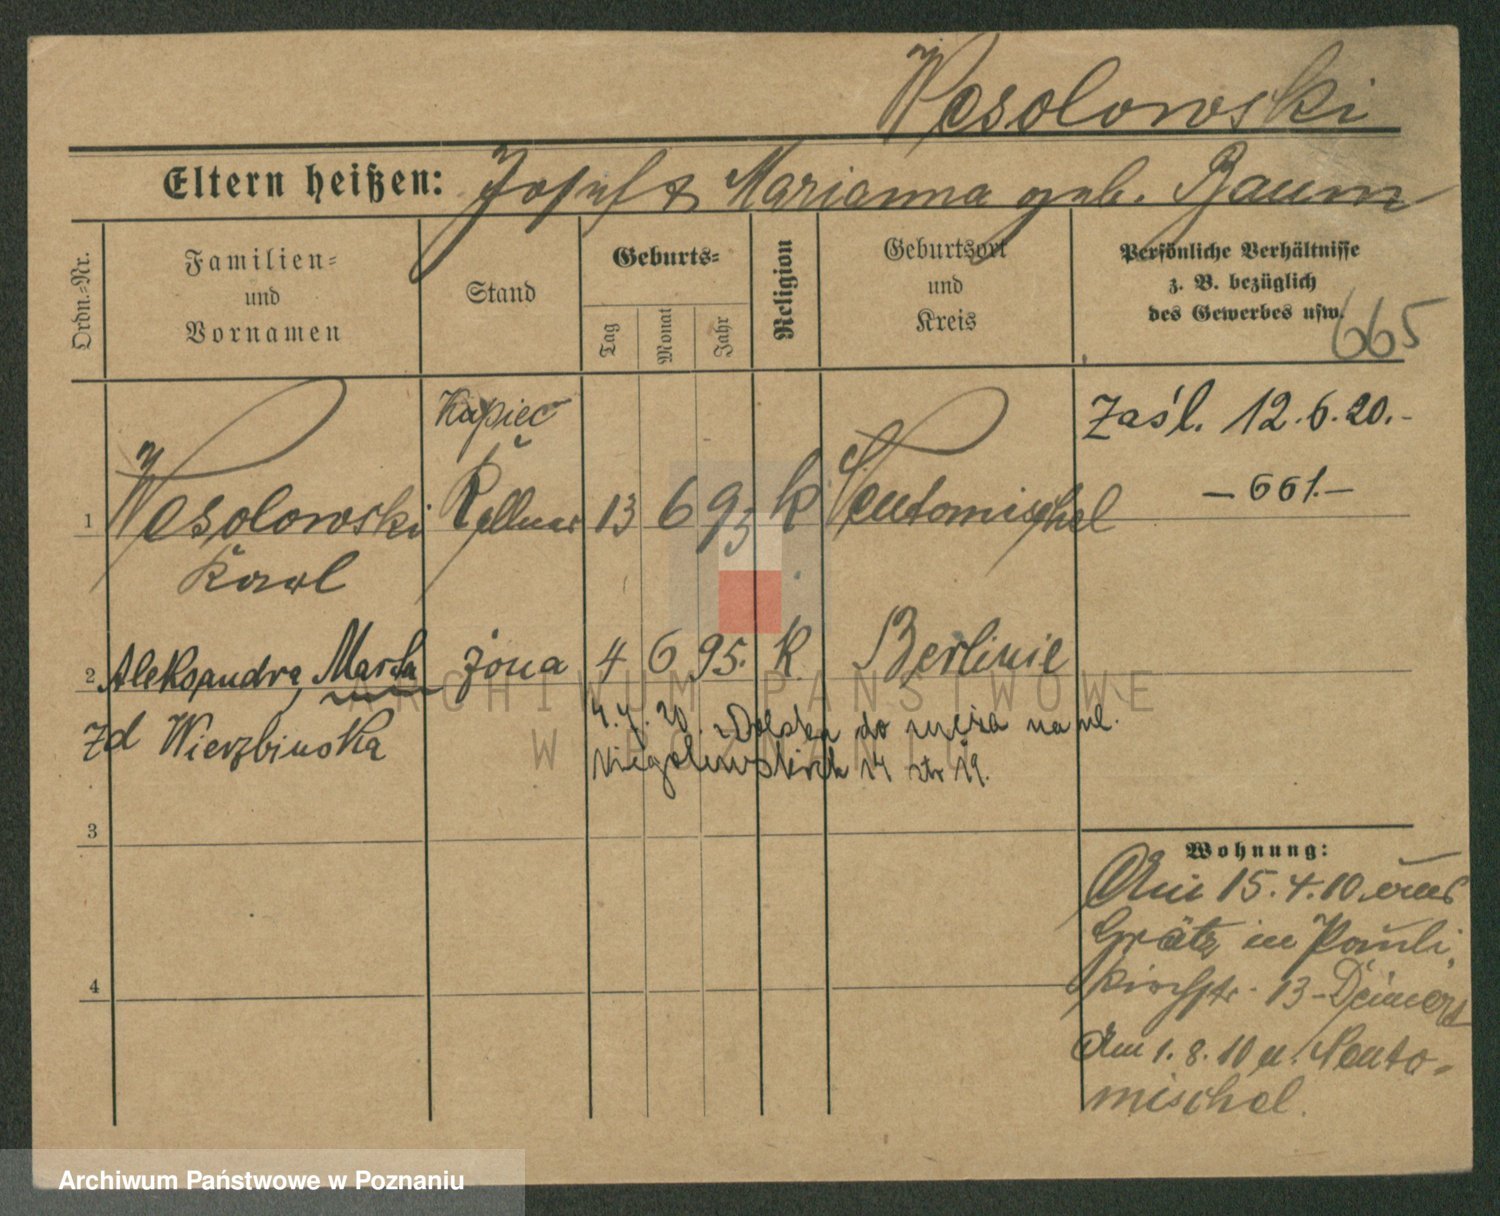 Wesolowski
Eltern heißen: Josef & Marianna geb. Baum
Ordn.-Nr.
Familien-
und
Vornamen
Stand
Geburts-
Tag
Monat
Jahr
Religion
Geburtsort
und
Kreis
Persönliche Verhältnisse
z. B. bezüglich
des Gewerbes usw.
665
Kupiec
Zaśl. 12.6.20.-
- 661.-
1 Wesolowski Kellner 13 6 95 k Neutomischel
Karl
2 Aleksandra, Marta żona 4 6 95. k. Berlinie
zd Wierzbinska
4.7.20. do męża na ul.
Niegolewskich 14 19.
3
4
Wohnung:
Am 15.4.10 aus
Grätz in Pauli
kirchstr. 13-
Am 1.8.10 n. Neuto-
mischel.
ARCHIWUM PAŃSTWOWE
W POZNANIU
Archiwum Państwowe w Poznaniu